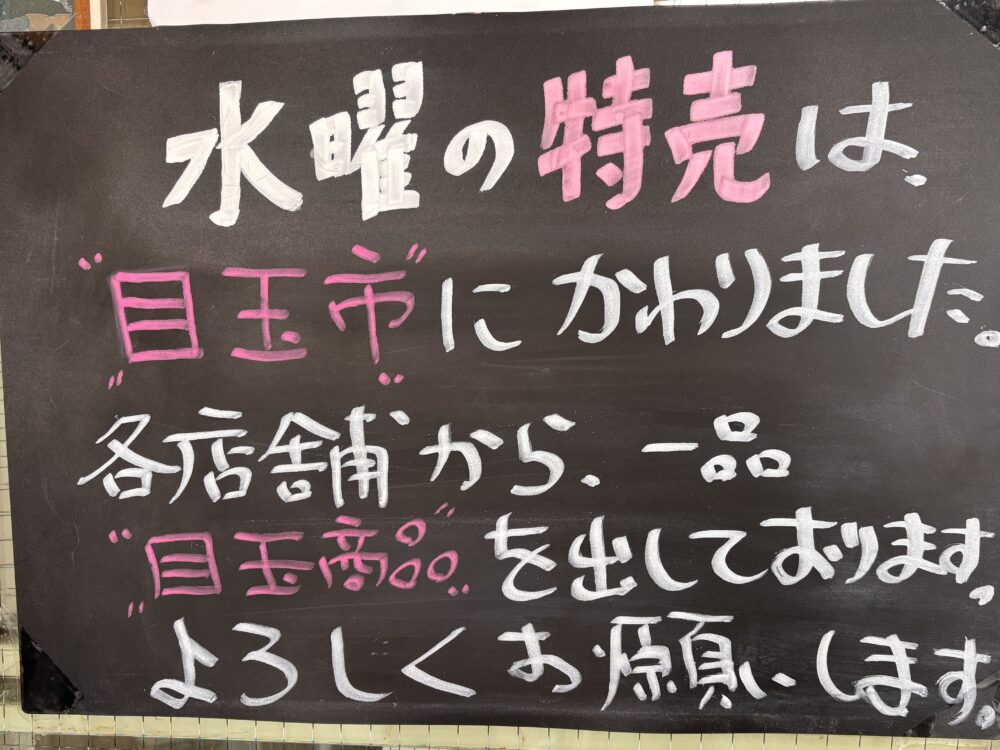 水曜の特売は、
"目玉市"にかわりました。
各店舗から、一品
"目玉商品"を出しております。
よろしくお願いします。